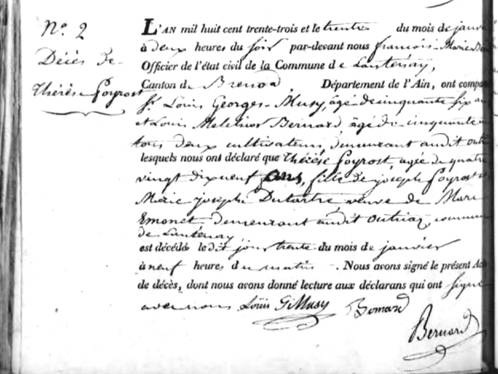 N.º 2
Décès de
Thérèse Poyrost
L'AN mil huit cent trente-trois et le trente du mois de janvier
à deux heures du soir par-devant nous françois Marie
Officier de l'état civil de la Commune de Lantenay,
Canton de Brenod, Département de l'Ain, ont comparu
Louis Georges Musy, âgé de cinquante six ans
et Louis Melchior Bernard, âgé de cinquante
trois deux cultivateurs, demeurant audit outriaz
lesquels nous ont déclaré que Thérèse Poyrost agée de quatre
vingt dix neuf ans, fille de joseph Poyrost et
Marie joseph Dutartre veuve de Marc
Emonet demeurant audit Outriaz, commune
de Lantenay
est décédé le dit jour trente du mois de janvier
à neuf heures du matin. Nous avons signé le présent Acte
de décès, dont nous avons donné lecture aux déclarans qui ont signé
avec nous Loüis G Musy
Bernard